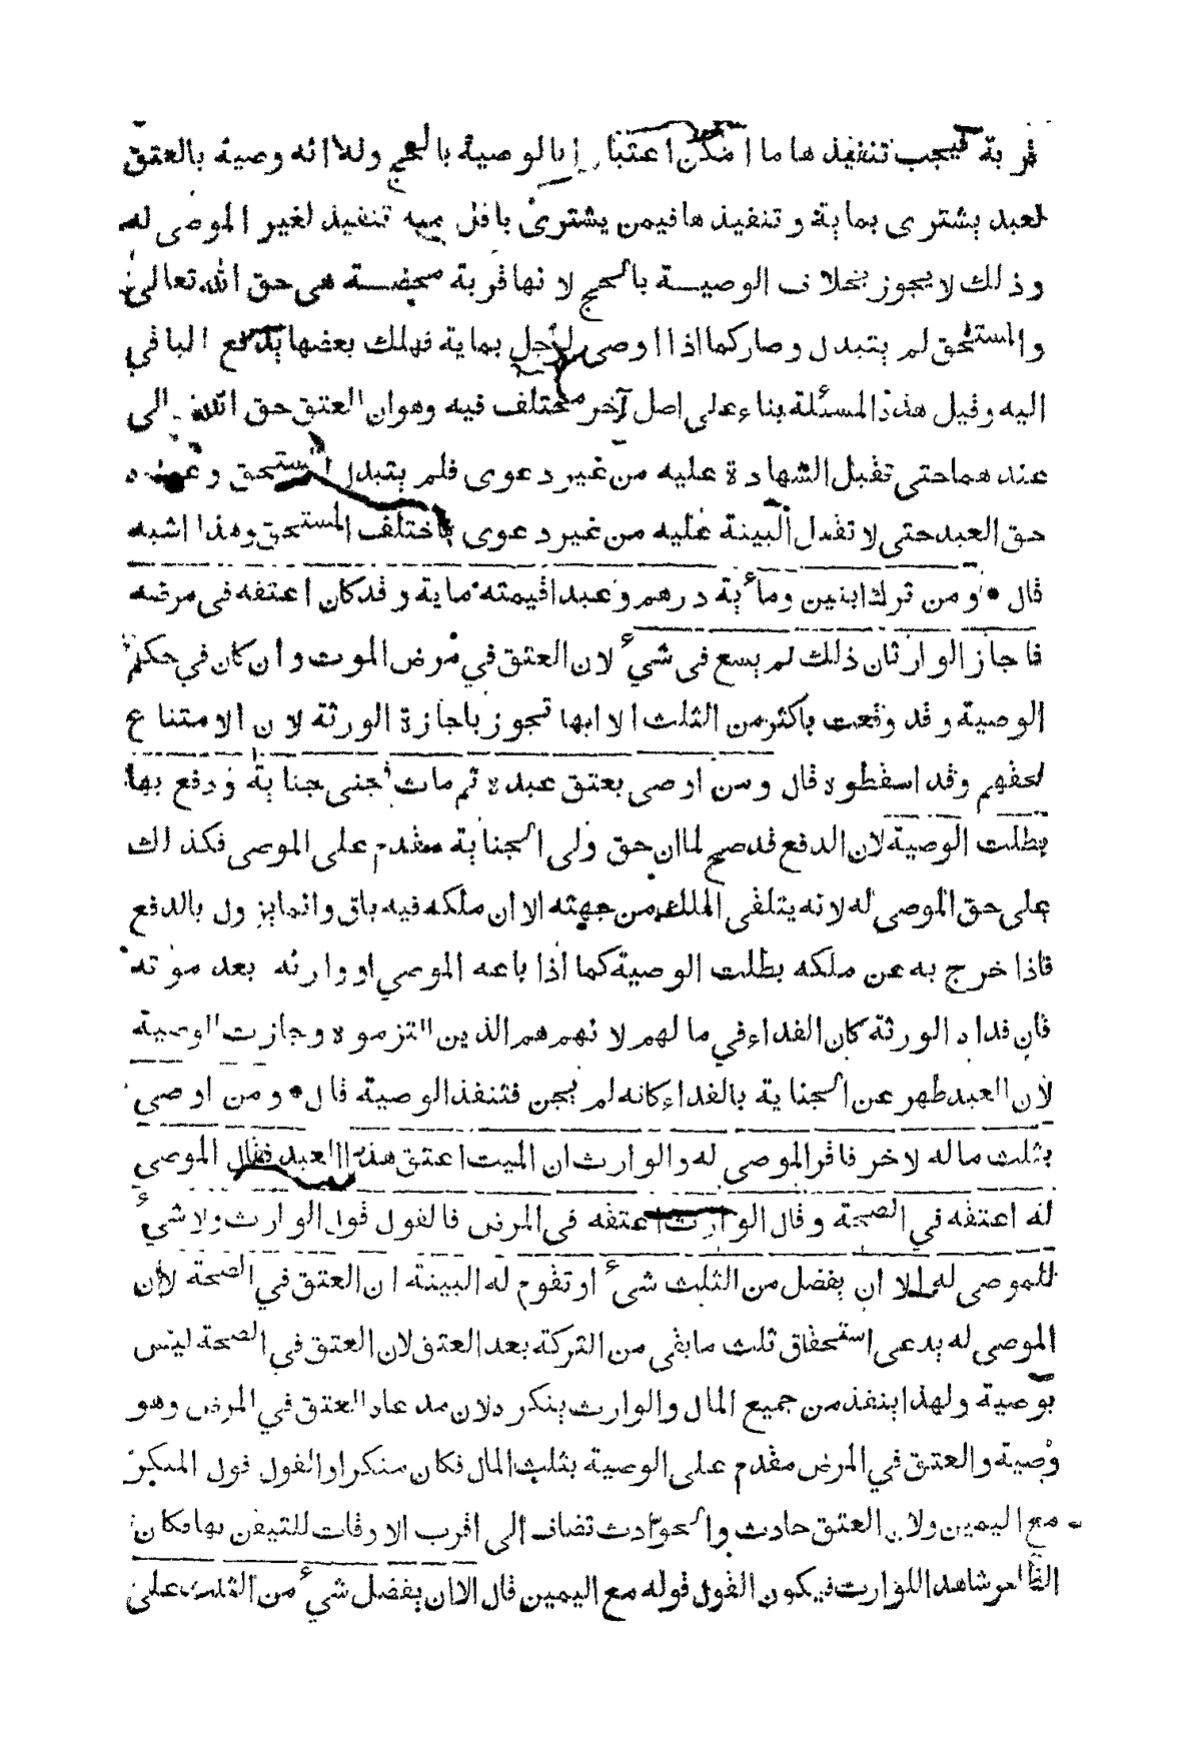 قربة فيجب تنفيذها ما امكن اعتبارا بالوصية بالحج وله انه وصية بالعتق
لعبد يشترى بماية وتنفيذها فيمن يشترى باقل منه تنفيذ لغير الموصى له
وذلك لا يجوز بخلاف الوصية بالحج لانها قربة محضة هى حق الله تعالى
والمستحق لم يتبدل وصار كما اذا اوصى لرجل بماية فهلك بعضها يدفع الباقي
اليه وقيل هذه المسئلة بناء على اصل آخر مختلف فيه وهو ان العتق حق الله تعالى
عندهما حتى تقبل الشهادة عليه من غير دعوى فلم يتبدل المستحق وعنده
حق العبد حتى لا تقبل البينة عليه من غير دعوى فاختلف المستحق وهذا اشبه
قال • ومن ترك ابنين ومأية درهم وعبدا قيمته ماية وقد كان اعتقه فى مرضه
فاجاز الوارثان ذلك لم يسع فى شيء لان العتق في مرض الموت وان كان في حكم
الوصية وقد وقعت باكثر من الثلث الا انها تجوز باجازة الورثة لان الامتناع
لحقهم وقد اسقطوه قال ومن اوصى بعتق عبده ثم مات فجنى جناية ودفع بها
بطلت الوصية لان الدفع قد صح لما ان حق ولى الجناية مقدم على الموصى فكذلك
على حق الموصى له لانه يتلقى الملك من جهته الا ان ملكه فيه باق وانما يزول بالدفع
فاذا خرج به عن ملكه بطلت الوصية كما اذا باعه الموصي او وارثه بعد موته
فان فداه الورثة كان الفداء في ما لهم لانهم هم الذين التزموه وجازت الوصية
لان العبد طهر عن الجناية بالفداء كانه لم يجن فتنفذ الوصية قال • ومن اوصى
بثلث ماله لاخر فاقر الموصى له والوارث ان الميت اعتق هذا العبد فقال الموصى
له اعتقه في الصحة وقال الوارث اعتقه فى المرض فالقول قول الوارث ولا شيء
للموصى له الا ان يفضل من الثلث شىء او تقوم له البينة ان العتق في الصحة لان
الموصى له يدعى استحقاق ثلث ما بقى من التركة بعد العتق لان العتق في الصحة ليس
بوصية ولهذا ينفذ من جميع المال والوارث ينكر دلان مدعاه العتق في المرض وهو
وصية والعتق في المرض مقدم على الوصية بثلث المال فكان منكرا والقول قول المنكر
مع اليمين ولان العتق حادث والحوادث تضاف الى اقرب الاوقات للتيقن بها فكان
الظاهر شاهدا للوارث فيكون القول قوله مع اليمين قال الا ان يفضل شىء من الثلث على